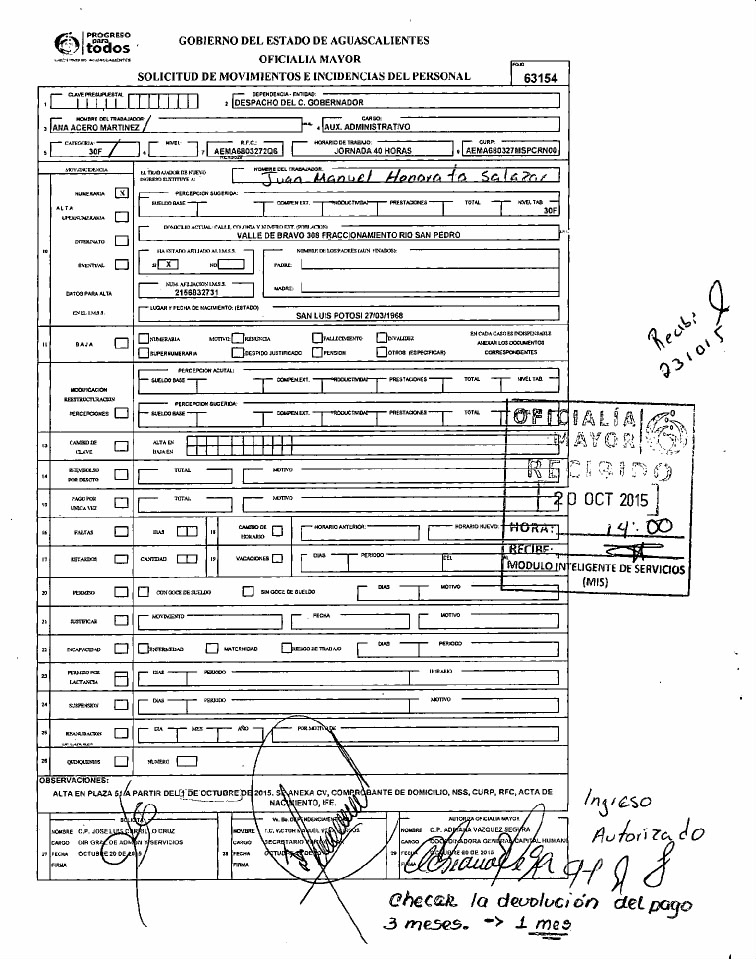 PROGRESO
para
todos
GOBIERNO DEL ESTADO DE AGUASCALIENTES
OFICIALIA MAYOR
SOLICITUD DE MOVIMIENTOS E INCIDENCIAS DEL PERSONAL
FOLIO
63154
CLAVE PRESUPUESTAL
DEPENDENCIA - ENTIDAD:
1
2 DESPACHO DEL C. GOBERNADOR
NOMBRE DEL TRABAJADOR
CARGO:
3 ANA ACERO MARTINEZ
4 AUX. ADMINISTRATIVO
CATEGORIA: NIVEL: R.F.C.: HORARIO DE TRABAJO: CURP:
5 30F 6 7 AEMA6803272Q6 JORNADA 40 HORAS 8 AEMA680327MSPCRN00
MOV/INCIDENCIA
EL TRABAJADOR DE NUEVO
INGRESO SUSTITUYE A:
NOMBRE DEL TRABAJADOR:
Juan Manuel Honorato Salazar
NUMERARIA X
PERCEPCION SUGERIDA:
SUELDO BASE COMPEN EXT. PRODUCTIVIDAD PRESTACIONES TOTAL NIVEL TAB.
30F
ALTA
SUPERNUMERARIA
DOMICILIO ACTUAL: CALLE, COLONIA Y NUMERO EXT. (POBLACION)
VALLE DE BRAVO 308 FRACCIONAMIENTO RIO SAN PEDRO
INTERINATO
10
HA ESTADO AFILIADO AL I.M.S.S.
NOMBRE DE LOS PADRES (AUN FINADOS):
EVENTUAL
SI X NO
PADRE:
NUM. AFILIACION I.M.S.S.
DATOS PARA ALTA
2156832731
MADRE:
EN EL I.M.S.S.
LUGAR Y FECHA DE NACIMIENTO: (ESTADO)
SAN LUIS POTOSI 27/03/1968
Recibí
231015
11 BAJA
NUMERARIA MOTIVO: RENUNCIA FALLECIMIENTO INVALIDEZ
SUPERNUMERARIA DESPIDO JUSTIFICADO PENSION OTROS (ESPECIFICAR)
EN CADA CASO ES INDISPENSABLE
ANEXAR LOS DOCUMENTOS
CORRESPONDIENTES
PERCEPCION ACUTAL:
SUELDO BASE COMPEN EXT. PRODUCTIVIDAD PRESTACIONES TOTAL NIVEL TAB.
MODIFICACION
REESTRUCTURACION
PERCEPCIONES
PERCEPCION SUGERIDA:
SUELDO BASE COMPEN EXT. PRODUCTIVIDAD PRESTACIONES TOTAL
OFICIALÍA
MAYOR
RECIBIDO
20 OCT 2015
HORA: 14:00
RECIBE:
MODULO INTELIGENTE DE SERVICIOS
(MIS)
13 CAMBIO DE
CLAVE
ALTA EN
BAJA EN
14 REEMBOLSO
POR DESCTO
TOTAL MOTIVO
15 PAGO POR
UNICA VEZ
TOTAL MOTIVO
16 FALTAS DIAS 18 CAMBIO DE
HORARIO
HORARIO ANTERIOR: HORARIO NUEVO:
17 RETARDOS CANTIDAD 19 VACACIONES DIAS PERIODO DEL
20 PERMISO CON GOCE DE SUELDO SIN GOCE DE SUELDO DIAS MOTIVO
21 JUSTIFICAR MOVIMIENTO FECHA MOTIVO
22 INCAPACIDAD ENFERMEDAD MATERNIDAD RIESGO DE TRABAJO DIAS PERIODO
23 PERMISO POR
LACTANCIA
DIAS PERIODO HORARIO
24 SUSPENSION DIAS PERIODO MOTIVO
25 REANUDACION DIA MES AÑO POR MOTIVO DE
26 QUINQUENIOS NUMERO
OBSERVACIONES:
ALTA EN PLAZA 51/A PARTIR DEL 1 DE OCTUBRE DE 2015. SE ANEXA CV, COMPROBANTE DE DOMICILIO, NSS, CURP, RFC, ACTA DE
NACIMIENTO, IFE.
SOLICITA
NOMBRE C.P. JOSE LUIS
CARGO DIR GRAL DE ADMON Y SERVICIOS
27 FECHA OCTUBRE 20 DE 2015
FIRMA
Vo. Bo. DEPENDENCIA
NOMBRE VICTOR MANUEL
CARGO SECRETARIO
28 FECHA
FIRMA
AUTORIZA OFICIALIA MAYOR
NOMBRE C.P. ADRIANA VAZQUEZ SEGURA
CARGO COORDINADORA GENERAL CAPITAL HUMANO
29 FECHA
FIRMA
Ingreso
Autorizado
Checar la devolución del pago
3 meses. -> 1 mes